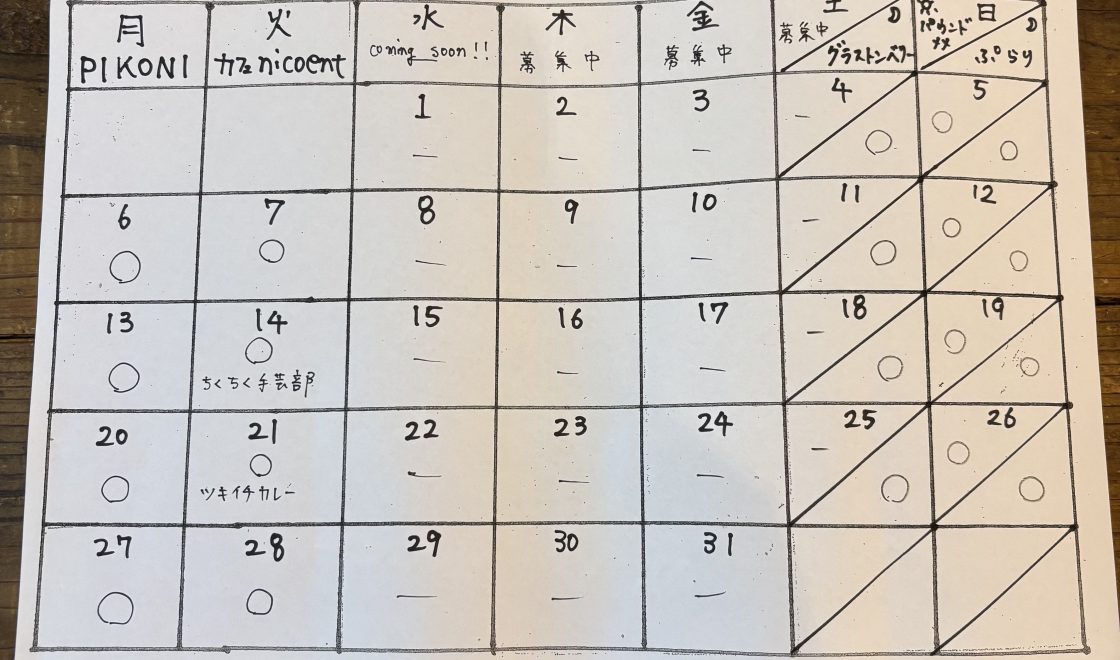 月 火 水 木 金 土 日
PIKONI カフェnicoent coming soon!! 募集中 募集中 募集中 グラストンベリー パウンド ぷらり
1 2 3 4 5
— — — — ○ ○ ○
6 7 8 9 10 11 12
○ ○ — — — — ○ ○ ○
13 14 15 16 17 18 19
○ ○ — — — — ○ ○ ○
ちくちく手芸部
20 21 22 23 24 25 26
○ ○ — — — — ○ ○ ○
ツキイチカレー
27 28 29 30 31
○ ○ — — —